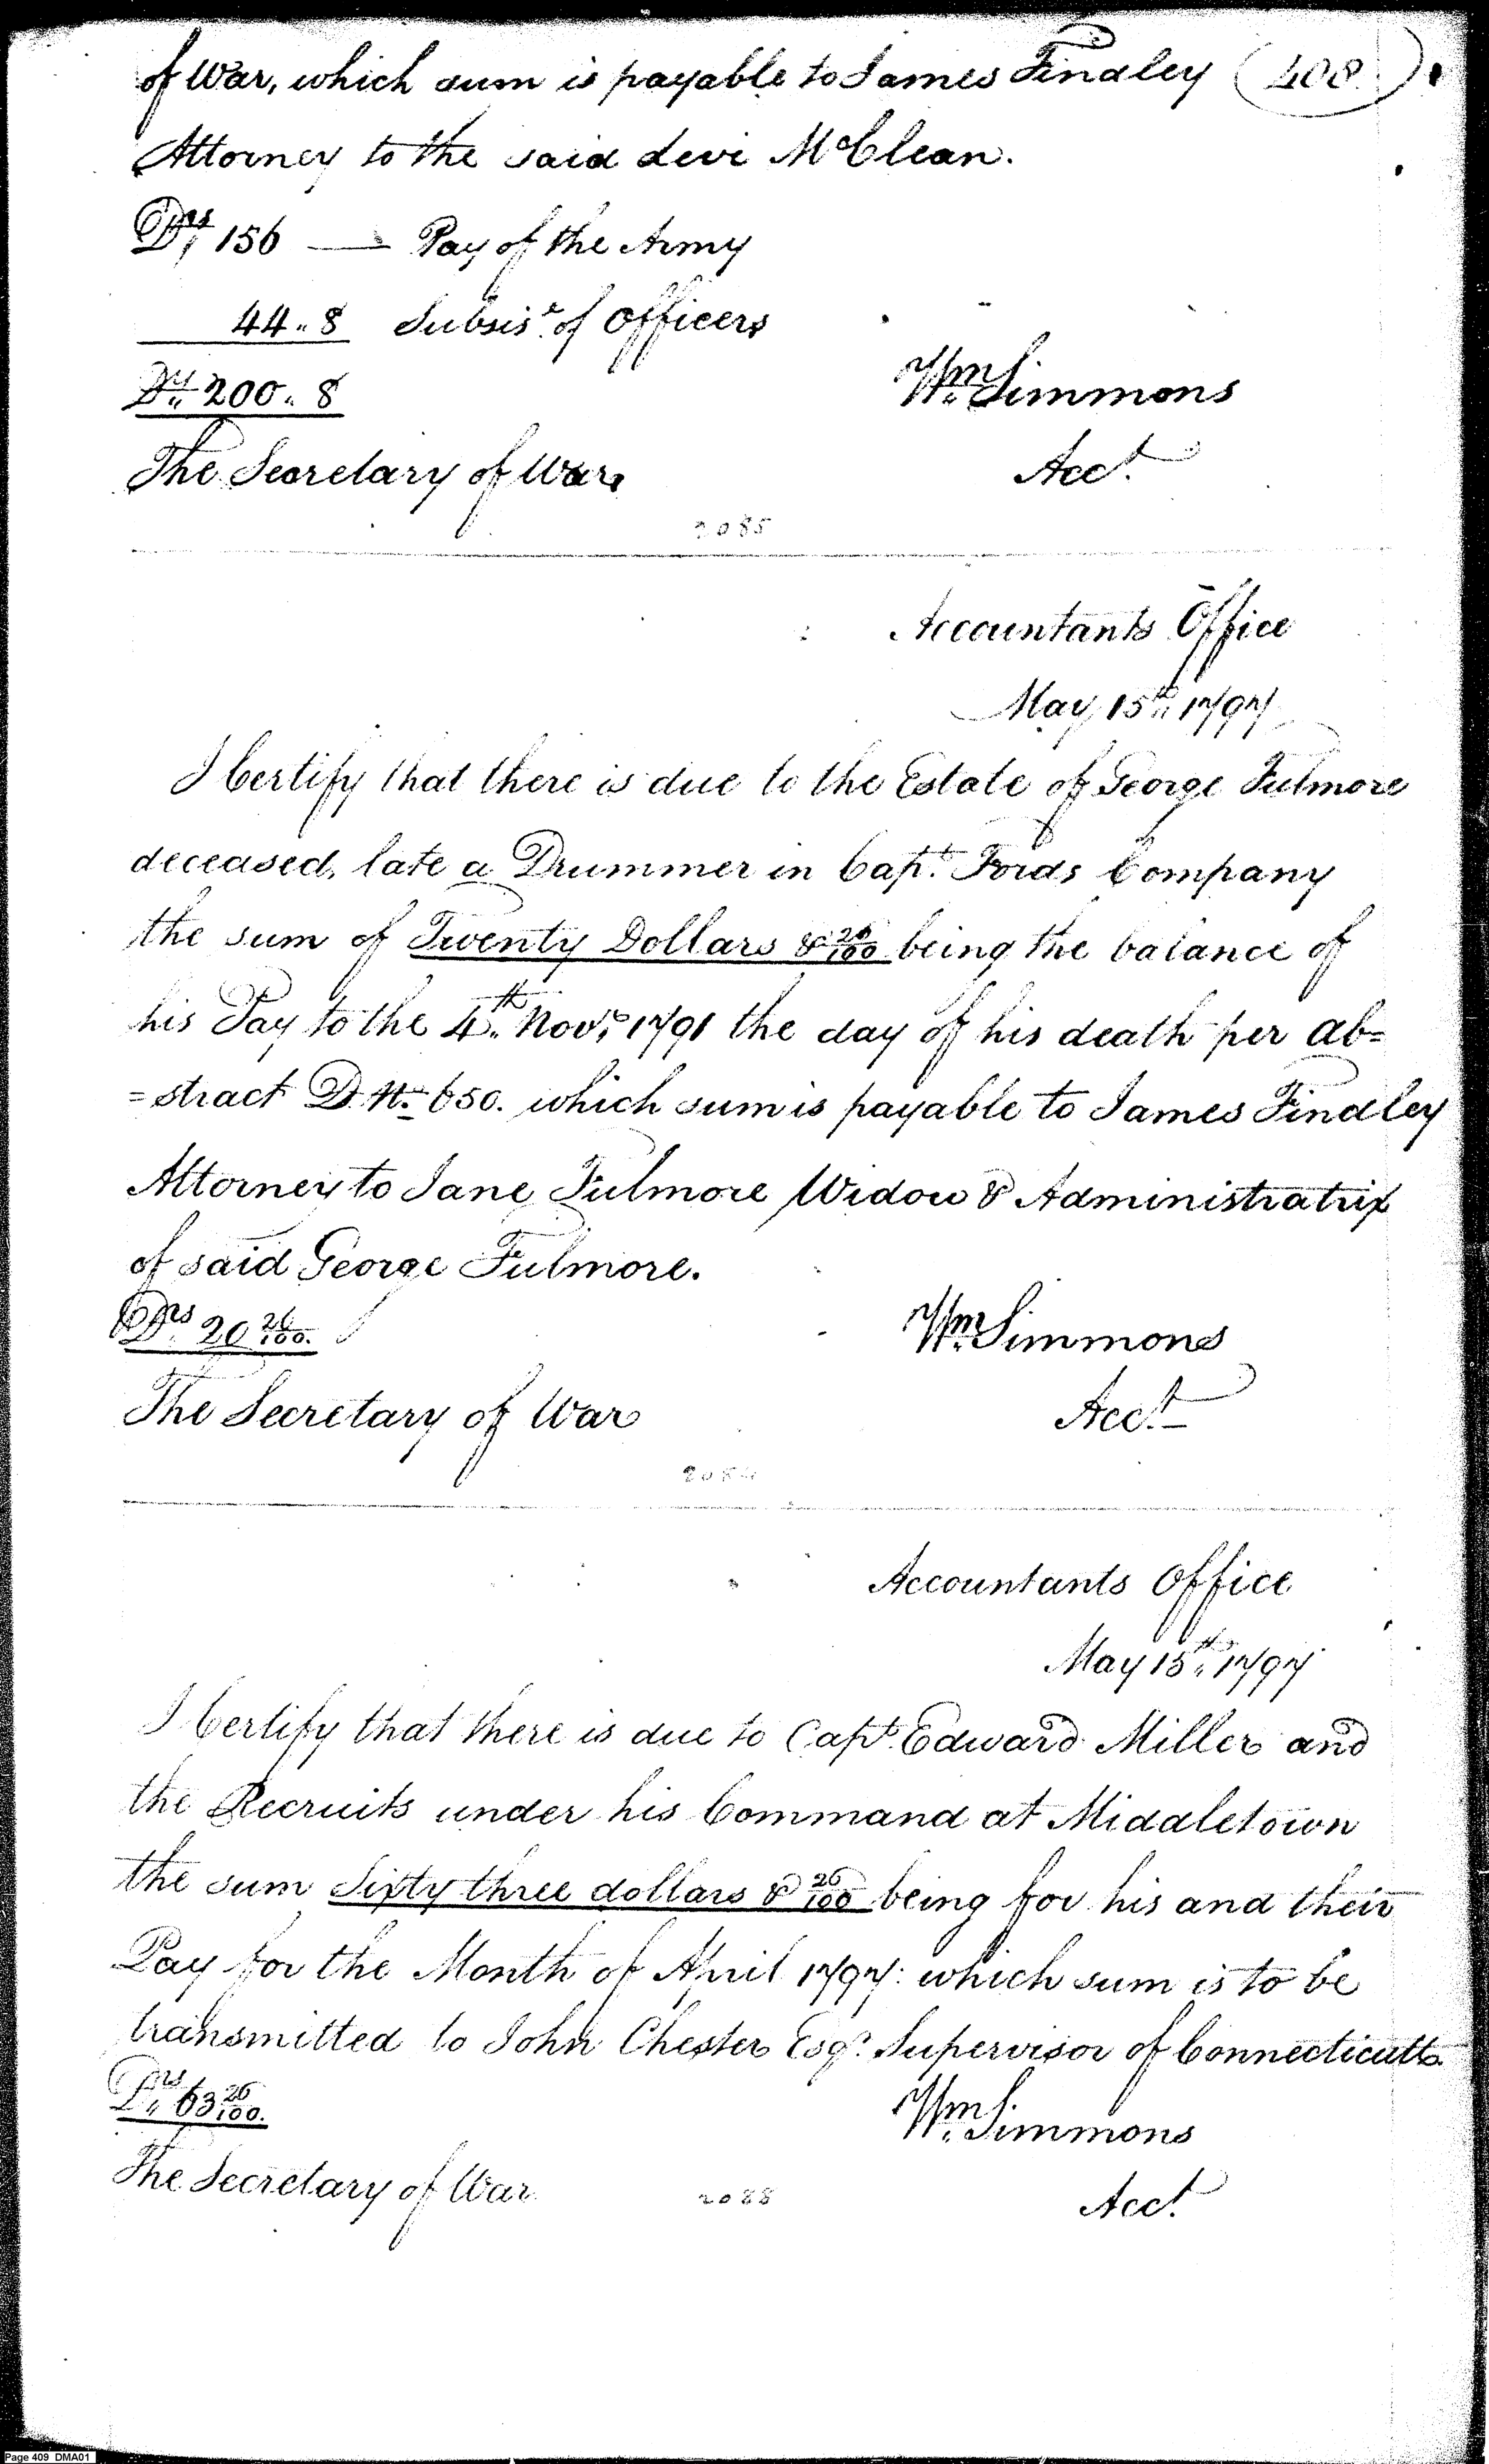 of War, which sum is payable to James Findley (408)
Attorney to the said Levi McClean.
Drs 156 — Pay of the Army
44.. 8 Subsis.e of Officers
Drs 200.. 8
Wm Simmons
The Secretary of War.
Acct.
2085
Accountants Office
May 15th 1797
I Certify that there is due to the Estate of George Fulmore
deceased, late a Drummer in Capt. Fords Company
the sum of Twenty Dollars & 26/100 being the balance of
his Pay to the 4th Novr. 1791 the day of his death per ab=
=stract D. No. 650. which sum is payable to James Findley
Attorney to Jane Fulmore Widow & Administratrix
of said George Fulmore.
Drs 20 26/100.
Wm Simmons
The Secretary of War
Acct.
Accountants Office
May 15th 1797
I Certify that there is due to Capt. Edward Miller and
the Recruits under his Command at Middletown
the sum Sixty three dollars & 26/100 being for his and their
Pay for the Month of April 1797: which sum is to be
transmitted to John Chester Esqr. Supervisor of Connecticutts
Drs 63 26/100.
Wm Simmons
The Secretary of War
2088
Acct.
Page 409 DMA01